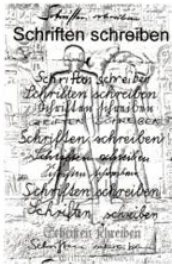 Schriften schreiben
Schriften schreiben
Schriften schreiben
Schriften schreiben
Schriften schreiben
SCHRIFTEN SCHREIBEN
Schriften schreiben
Schriften schreiben
Schriften schreiben
Schriften schreiben
Schriften schreiben
Schriften schreiben